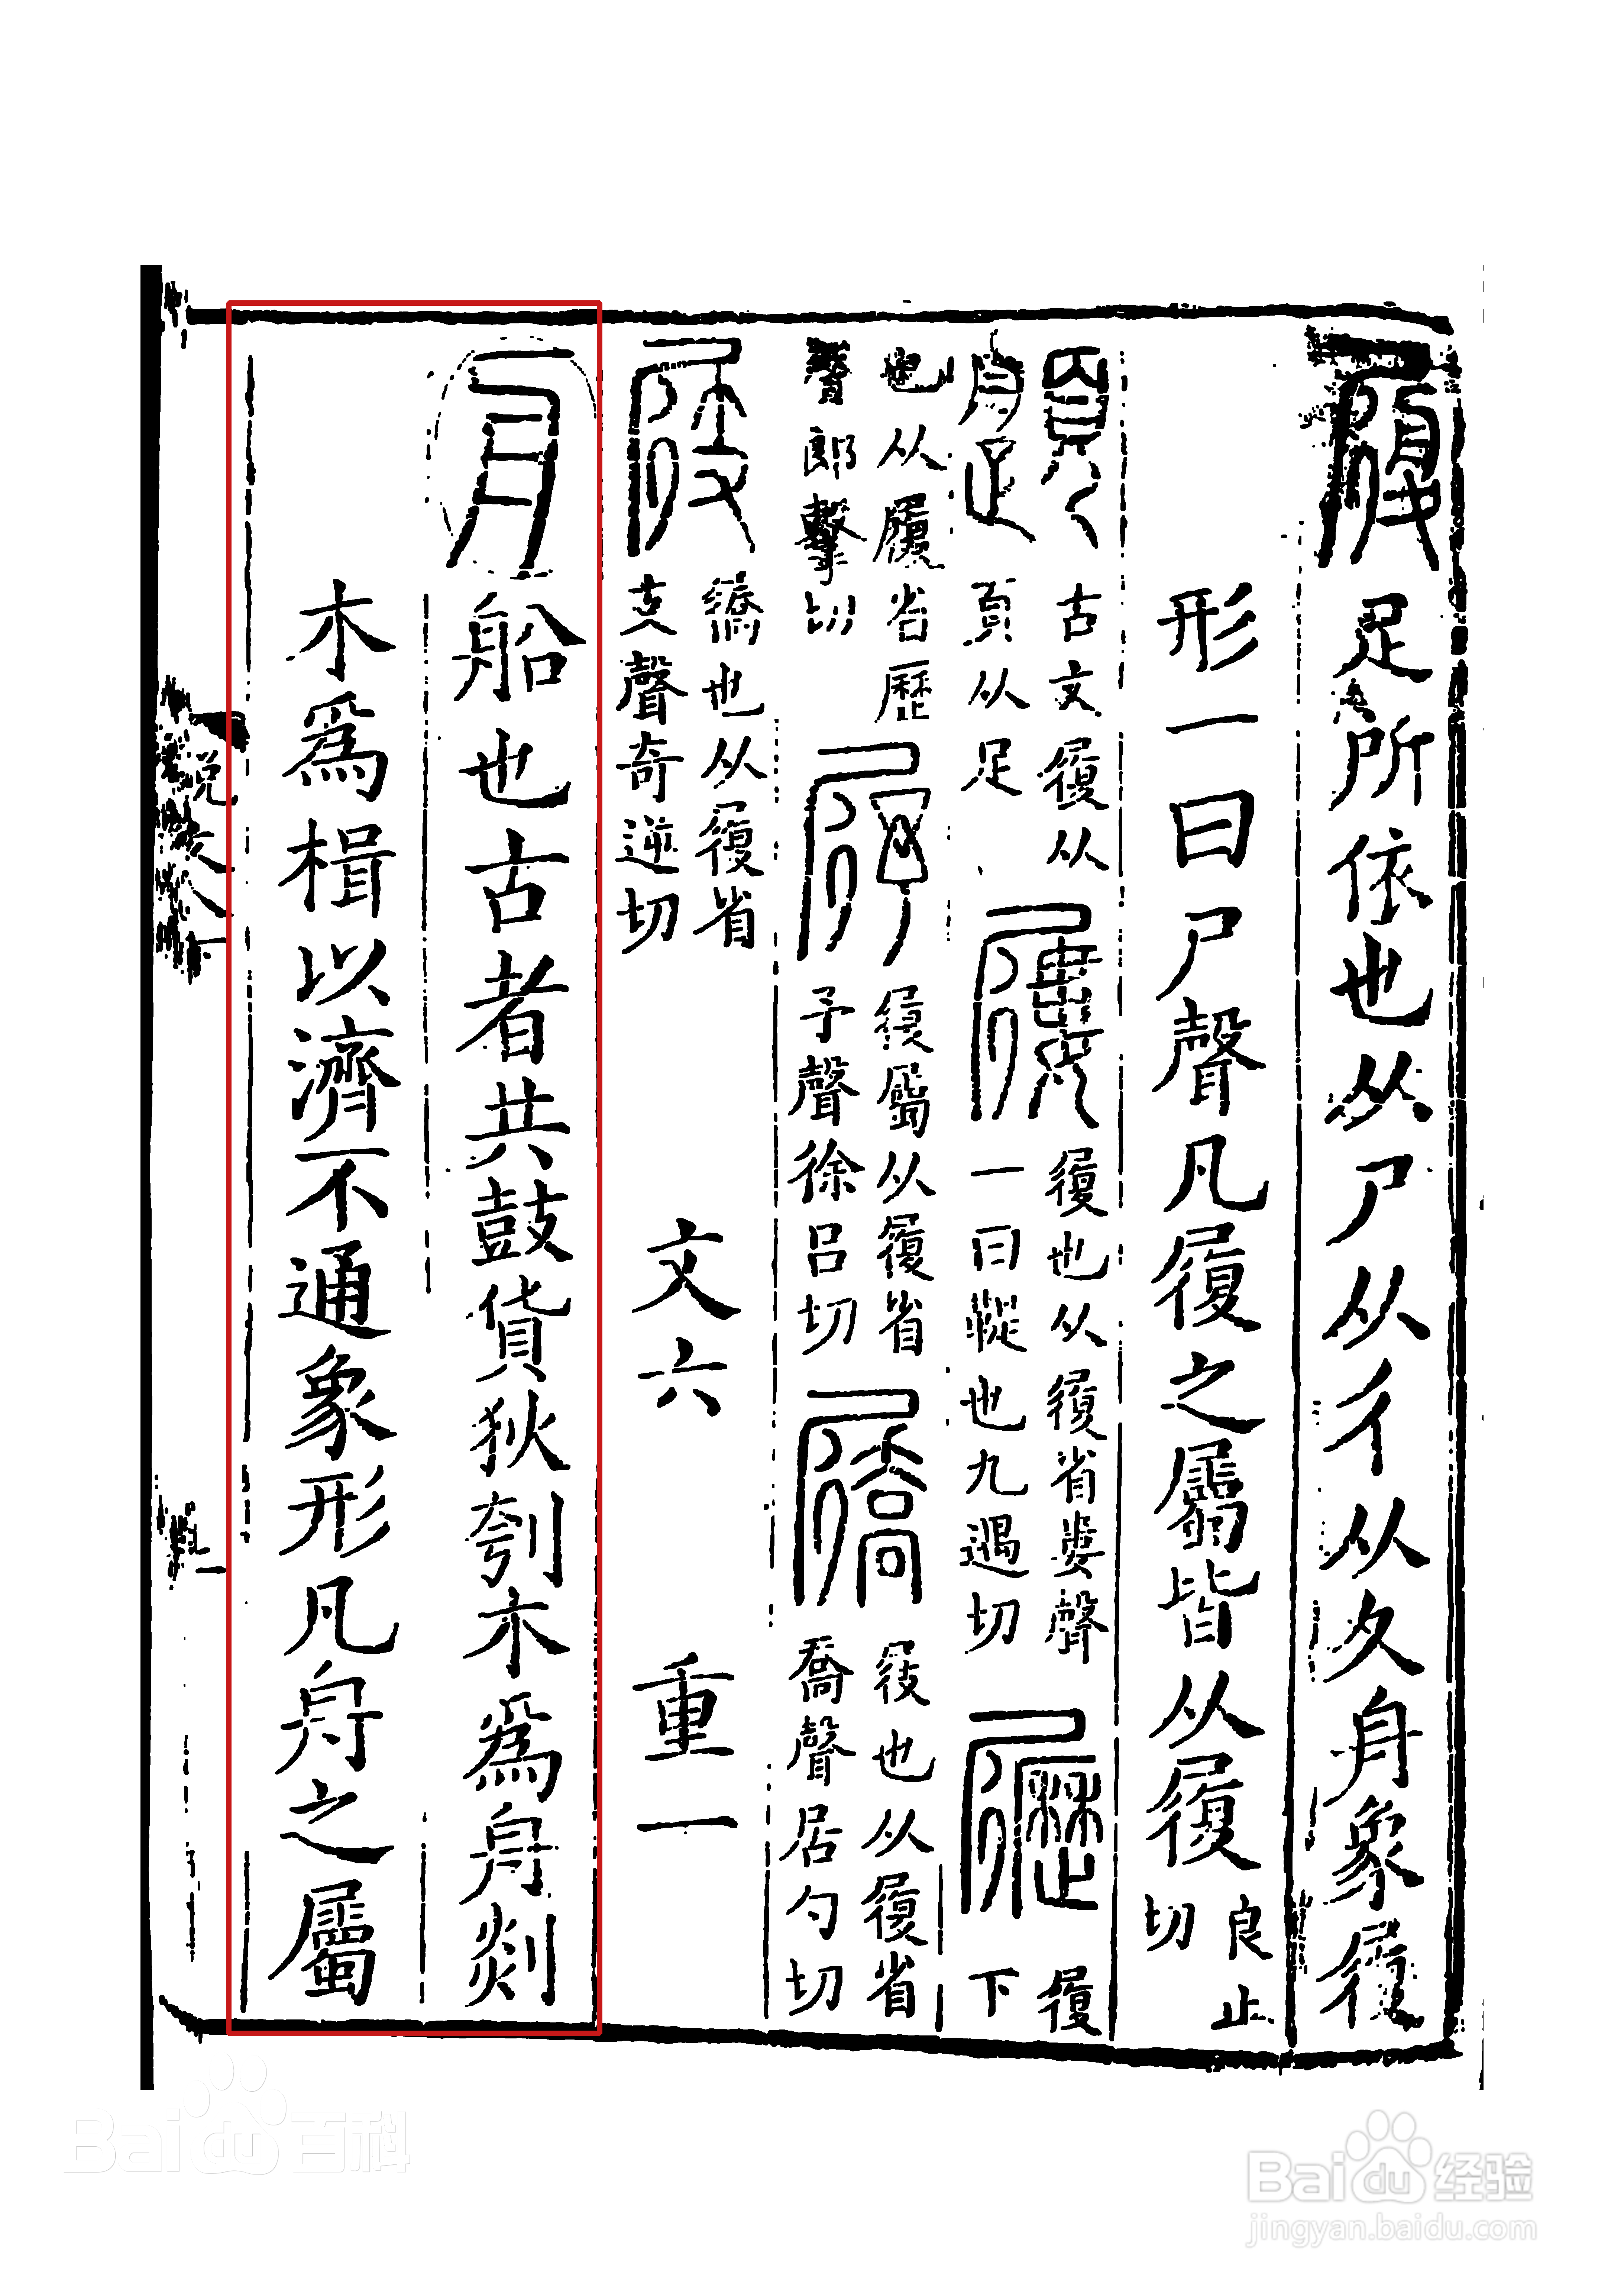 履 足所依也从尸从彳从夂舟象履
形一曰尸聲凡履之屬皆从履 良止切
𩕎 古文履从頁从足 屨 履也从履省婁聲一曰鞮也九遇切 𡳐 履下
也从履省歷聲郎擊切 𡳑 履屬从履省予聲徐呂切 屩 屐也从履省喬聲居勺切
屐 屩也从履省支聲奇逆切 文六 重一
舟 船也古者共鼓貨狄刳木為舟剡
木為楫以濟不通象形凡舟之屬
說文八下
Baidu百科
Baidu经验
jingyan.baidu.com